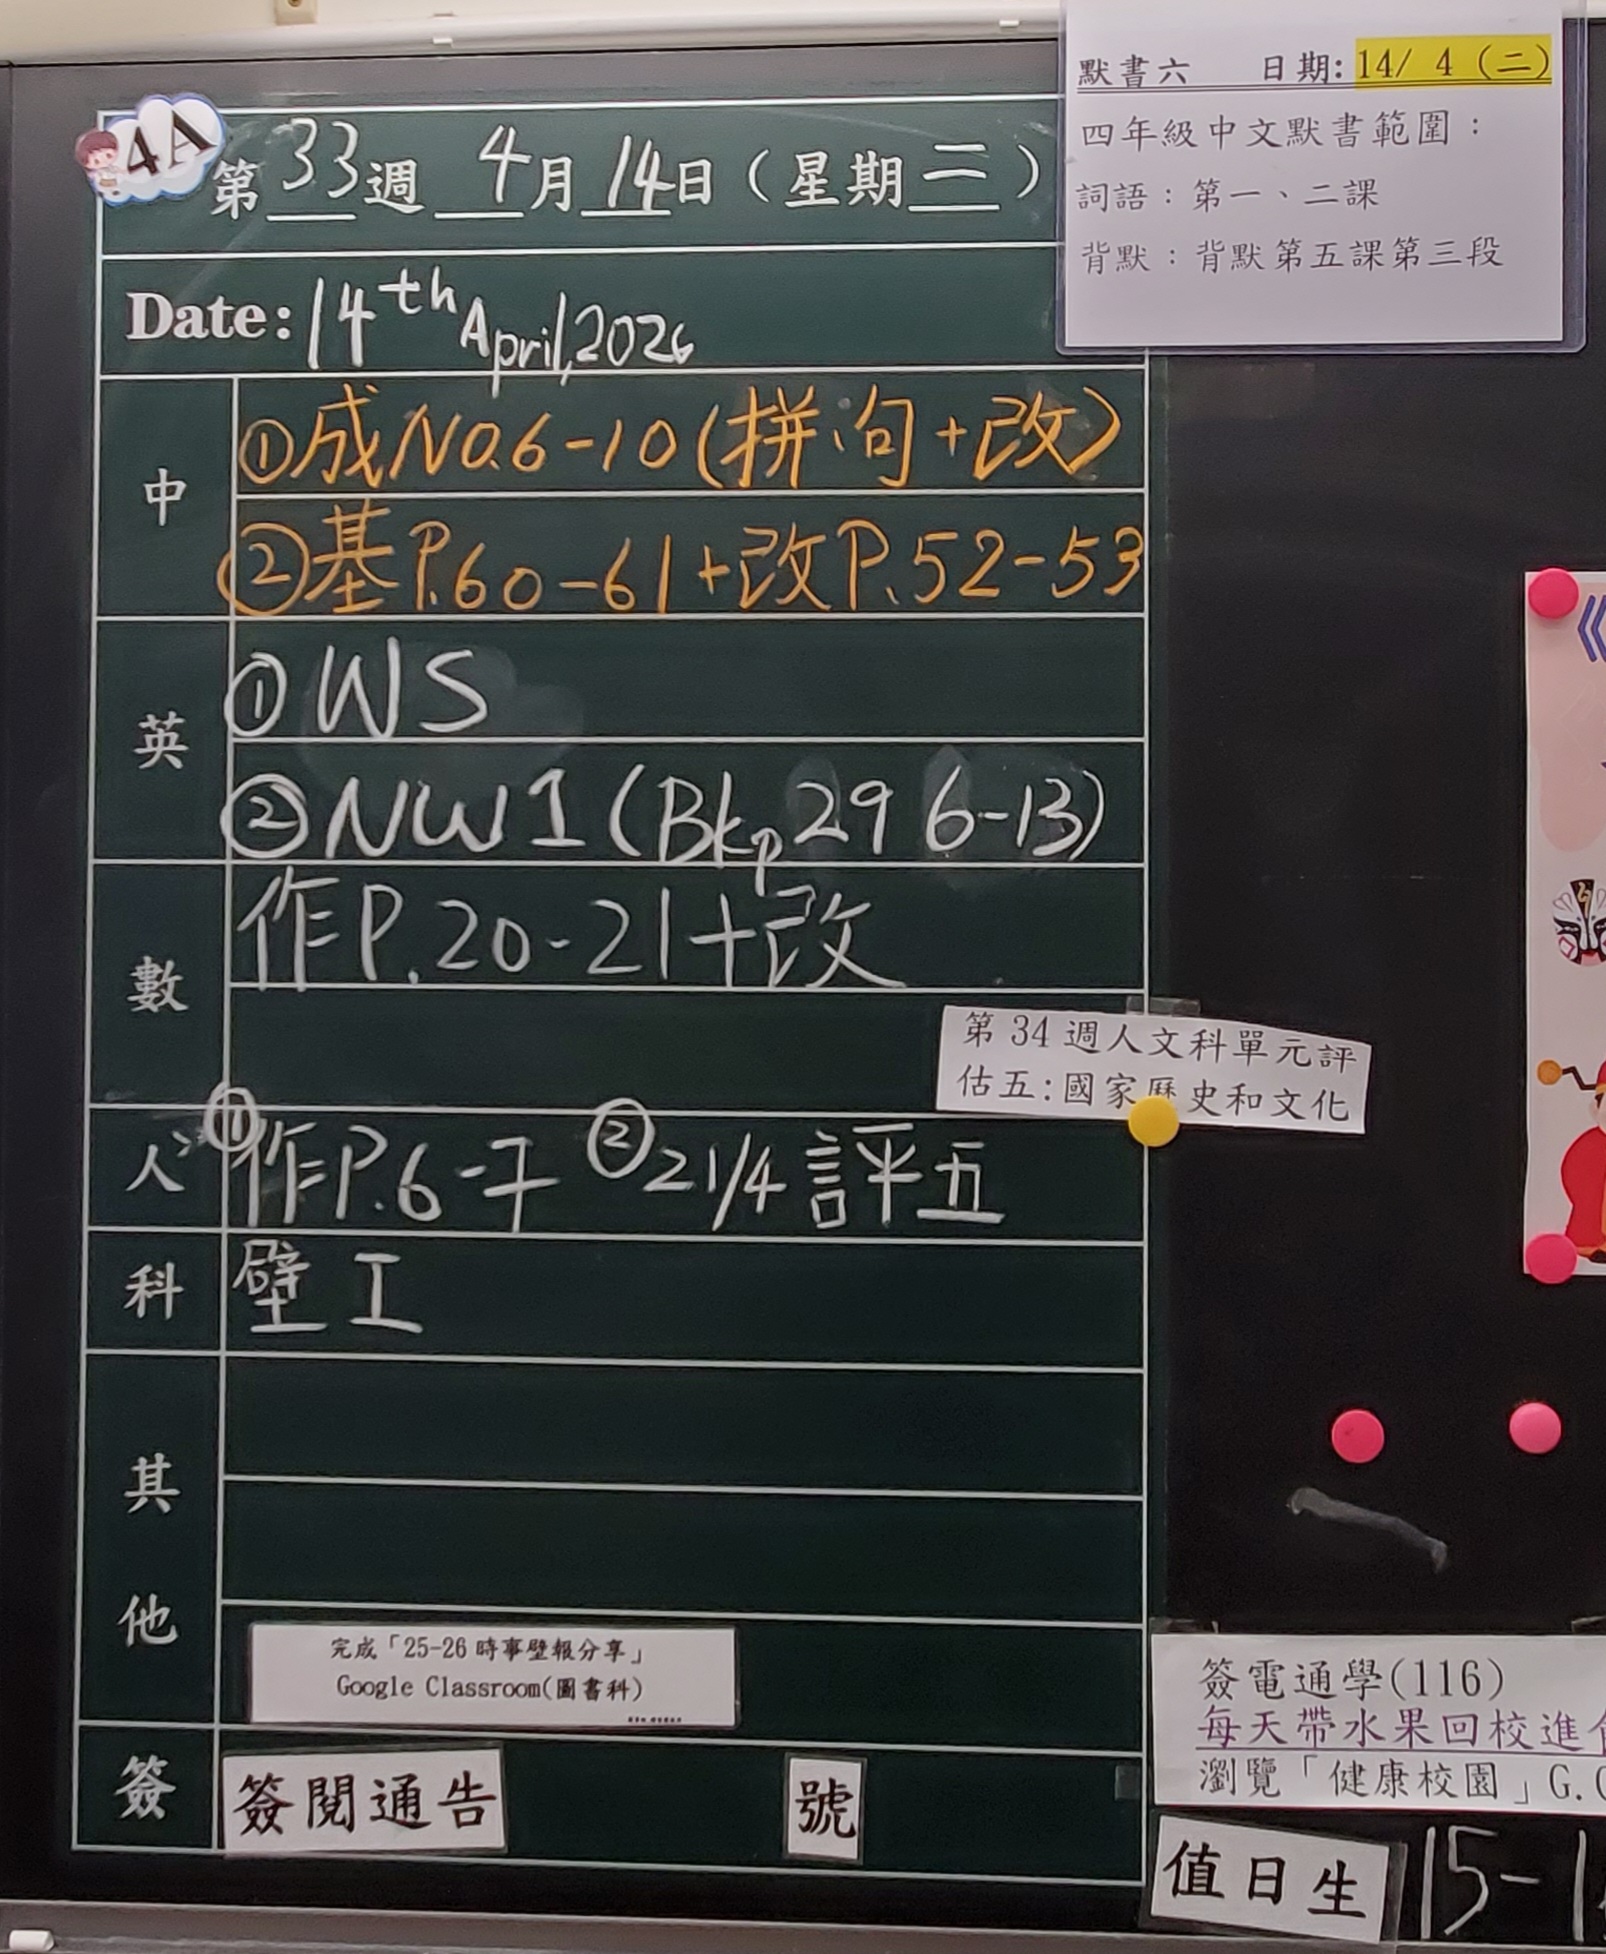 4A
第33週 4月14日（星期二）
Date: 14th April, 2026
中
①成NO.6-10(拼句+改)
②基P.60-61+改P.52-53
英
①WS
②NW1(Bkp29 6-13)
數
作P.20-21+改
人
①作P.6-7 ②21/4評五
科
壁工
其他
完成「25-26時事壁報分享」
Google Classroom(圖書科)
簽
簽閱通告 號
默書六 日期: 14/ 4 (二)
四年級中文默書範圍：
詞語：第一、二課
背默：背默第五課第三段
第34週人文科單元評
估五:國家歷史和文化
簽電通學(116)
每天帶水果回校進
瀏覽「健康校園」G.
值日生 15-1